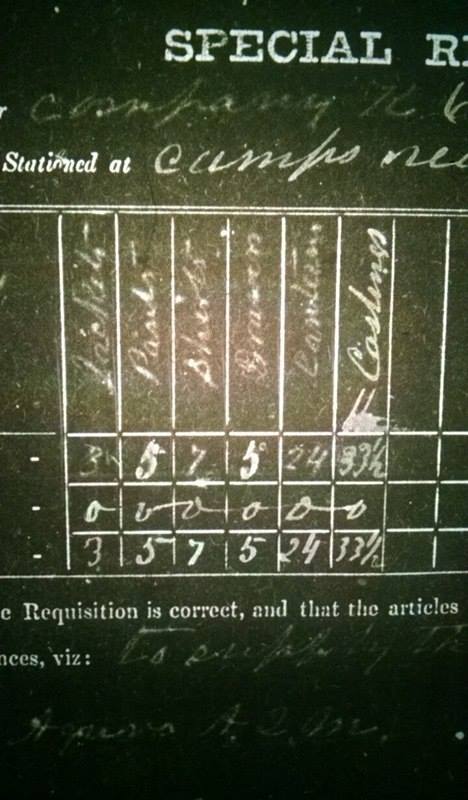 SPECIAL RE
r company K 6
Stationed at camps nea
Jackets Pants Shirts Drawers Castings
- 3 5 7 5 24 33½
- 0 0 0 0 0 0
- 3 5 7 5 24 33½
e Requisition is correct, and that the articles
nces, viz: To supply the
A. Q. M.